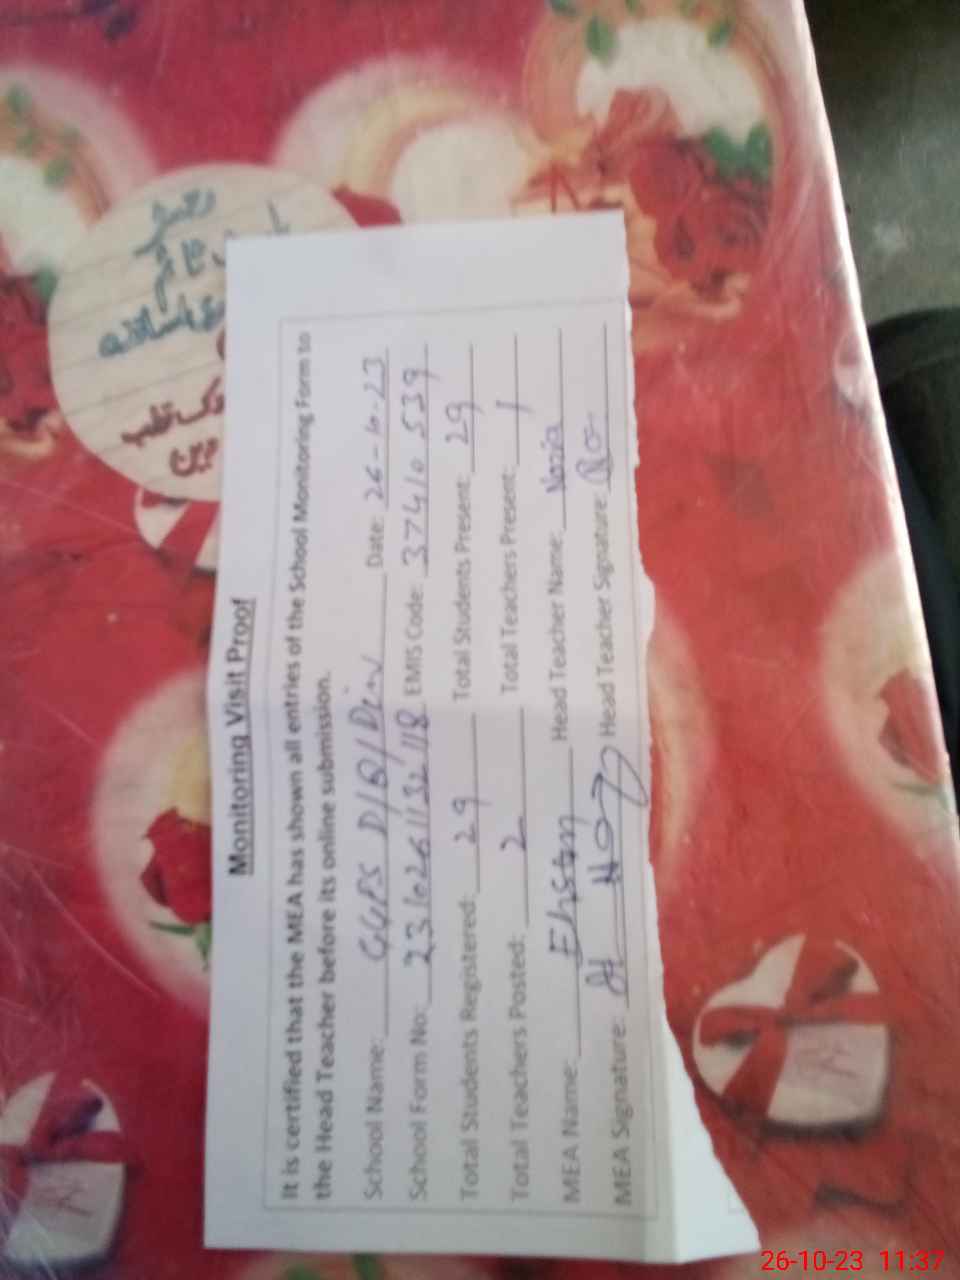 Monitoring Visit Proof
It is certified that the MEA has shown all entries of the School Monitoring Form to
the Head Teacher before its online submission.
School Name: GGPS D/B/Din Date: 26-10-23
School Form No: EMIS Code: 37410 539
Total Students Registered: 29 Total Students Present: 29
Total Teachers Posted: 2 Total Teachers Present: 1
MEA Name: Head Teacher Name:
MEA Signature: Head Teacher Signature:
26-10-23 11:37